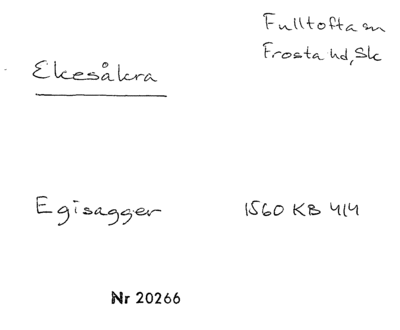 Fulltofta sn
Frosta hd, Sk
Ekesåkra
Egisagger 1560 KB 414
Nr 20266